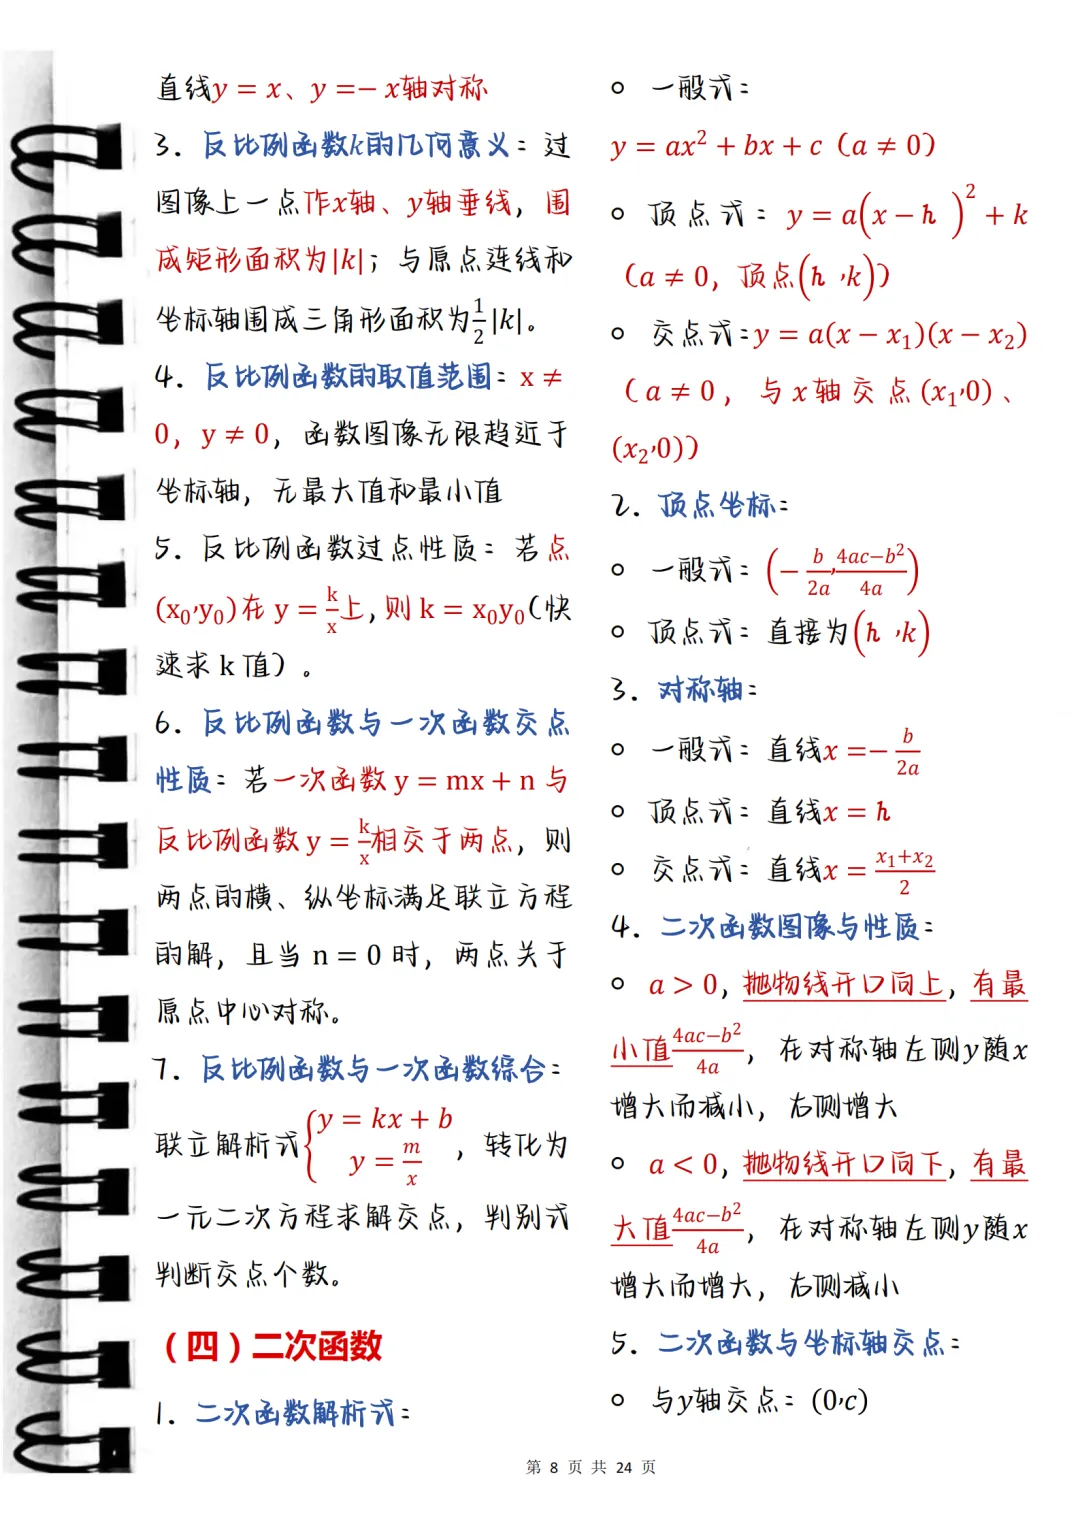 直线y = x、y =− x轴对称
3. 反比例函数k的几何意义：过
图像上一点作x轴、y轴垂线，围
成矩形面积为|k|；与原点连线和
坐标轴围成三角形面积为1/2|k|。
4. 反比例函数的取值范围：x ≠
0，y ≠ 0，函数图像无限趋近于
坐标轴，无最大值和最小值
5. 反比例函数过点性质：若点
(x₀,y₀)在 y = k/x上，则 k = x₀y₀（快
速求 k 值）。
6. 反比例函数与一次函数交点
性质：若一次函数 y = mx + n 与
反比例函数 y = k/x相交于两点，则
两点的横、纵坐标满足联立方程
的解，且当 n = 0 时，两点关于
原点中心对称。
7. 反比例函数与一次函数综合：
联立解析式{y = kx + b y = m/x，转化为
一元二次方程求解交点，判别式
判断交点个数。
（四）二次函数
1. 二次函数解析式：
○ 一般式：
y = ax² + bx + c（a ≠ 0）
○ 顶点式：y = a(x − h )² + k
（a ≠ 0，顶点(h ,k)）
○ 交点式：y = a(x − x₁)(x − x₂)
（a ≠ 0，与x轴交点(x₁,0)、
(x₂,0)）
2. 顶点坐标：
○ 一般式：(− b/2a, 4ac−b²/4a)
○ 顶点式：直接为(h ,k)
3. 对称轴：
○ 一般式：直线x =− b/2a
○ 顶点式：直线x = h
○ 交点式：直线x = x₁+x₂/2
4. 二次函数图像与性质：
○ a > 0，抛物线开口向上，有最
小值4ac−b²/4a，在对称轴左侧y随x
增大而减小，右侧增大
○ a < 0，抛物线开口向下，有最
大值4ac−b²/4a，在对称轴左侧y随x
增大而增大，右侧减小
5. 二次函数与坐标轴交点：
○ 与y轴交点：(0,c)
第 8 页 共 24 页